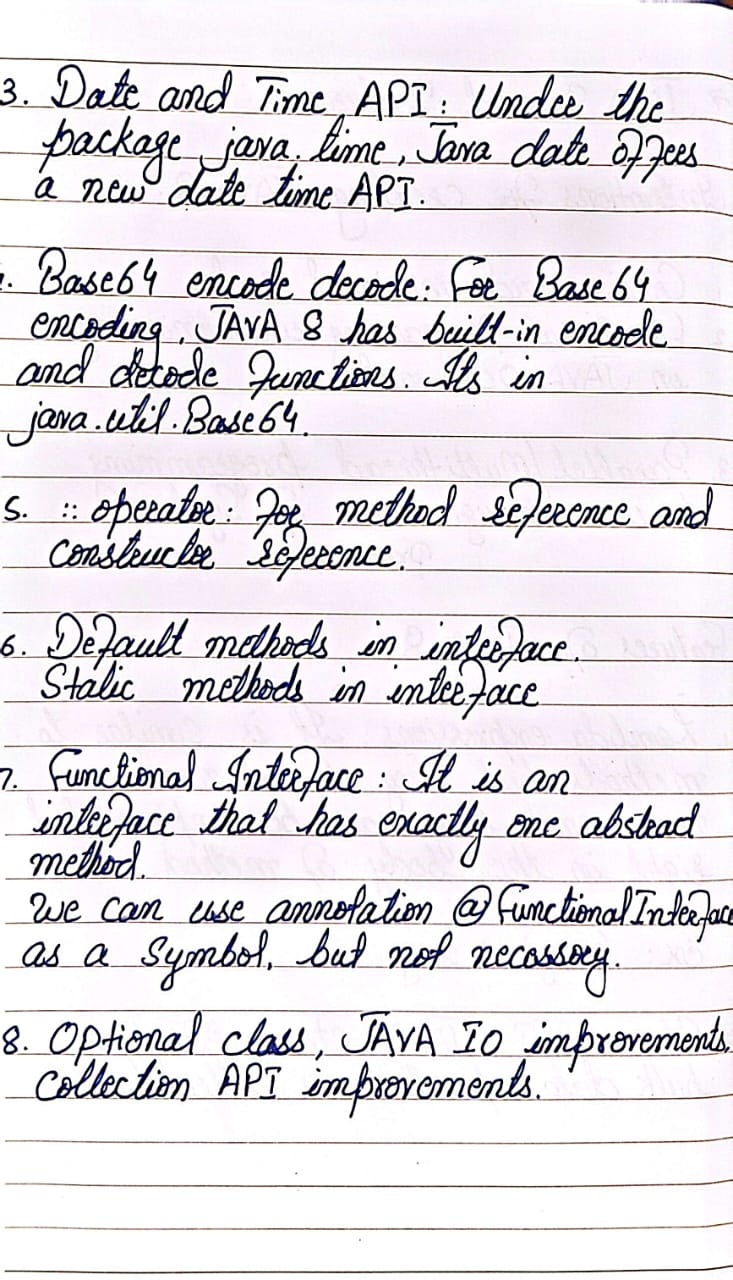 3. Date and Time API: Under the
package java.time, Java date offers
a new date time API.
. Base64 encode decode: For Base64
encoding, JAVA 8 has built-in encode
and detode functions. Its in
java.util.Base64.
5. :: operator: For method reference and
Constructor reference.
6. Default methods in interface.
Static methods in interface
7. Functional Interface: It is an
interface that has exactly one abstract
method.
We can use annotation @FunctionalInterface
as a Symbol, but not necossory.
8. Optional class, JAVA IO improvements.
Collection API improvements.